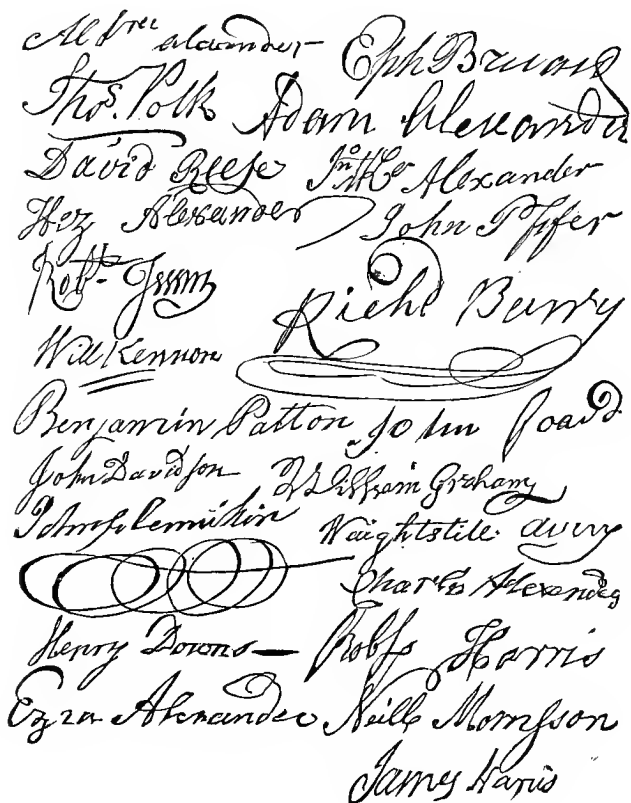 Alexander Eph Brevard
Thos. Polk Adam Alexander
David Reese Jno McKr Alexander
Hez Alexander John Phifer
Robt. Irwin
Richd Barry
Will Kennon
Benjamin Patton John Foard
John Davidson William Graham
John Flenniken Waightstill avery
Charles Alexander
Henry Downs Robt Harris
Ezra Alexander Neill Morrison
James Harris